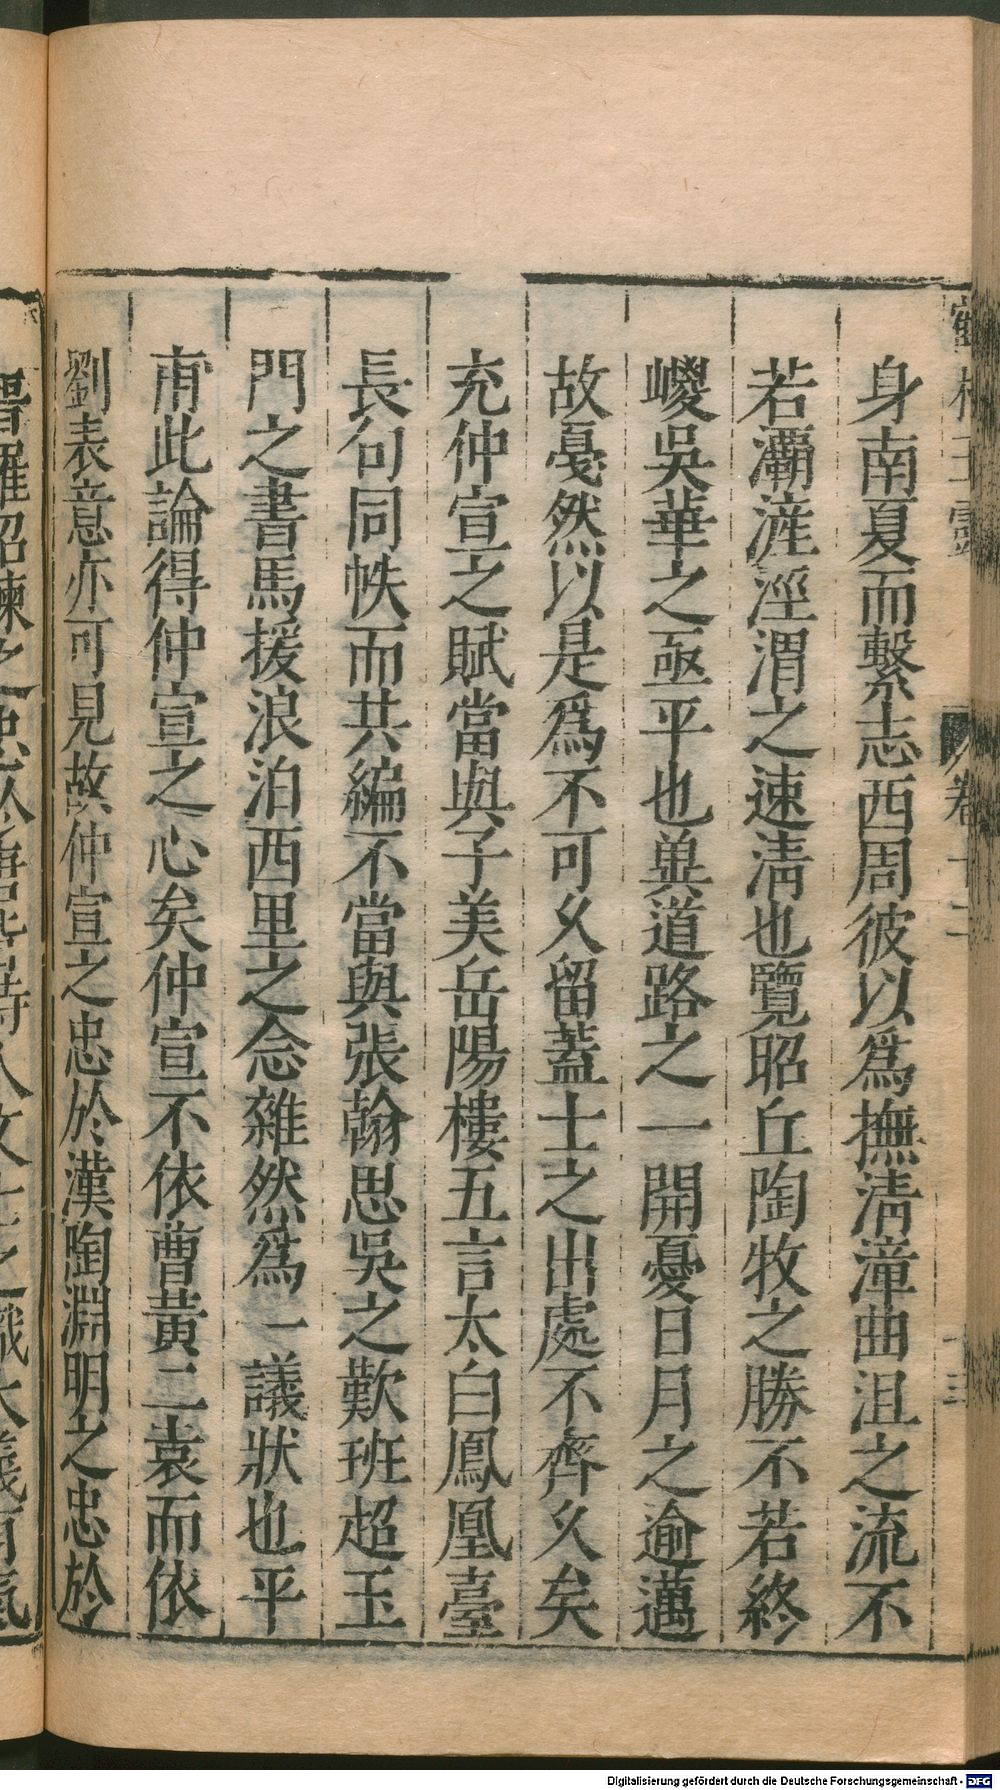 身南夏而繫志西周彼以爲撫淸漳曲沮之流不
若灞滻涇渭之速淸也覽昭丘陶牧之勝不若終
嵕吳華之亟平也兾道路之一開憂日月之逾邁
故戞然以是爲不可久留蓋士之出處不齊久矣
充仲宣之賦當與子美岳陽樓五言太白鳳凰臺
長句同帙而共編不當與張翰思吳之歎班超玉
門之書馬援浪泊西里之念雜然爲一議狀也平
甫此論得仲宣之心矣仲宣不依曹黃二袁而依
劉表意亦可見故仲宣之忠於漢陶淵明之忠於
卷十二
十三
Digitalisierung gefördert durch die Deutsche Forschungsgemeinschaft - DFG